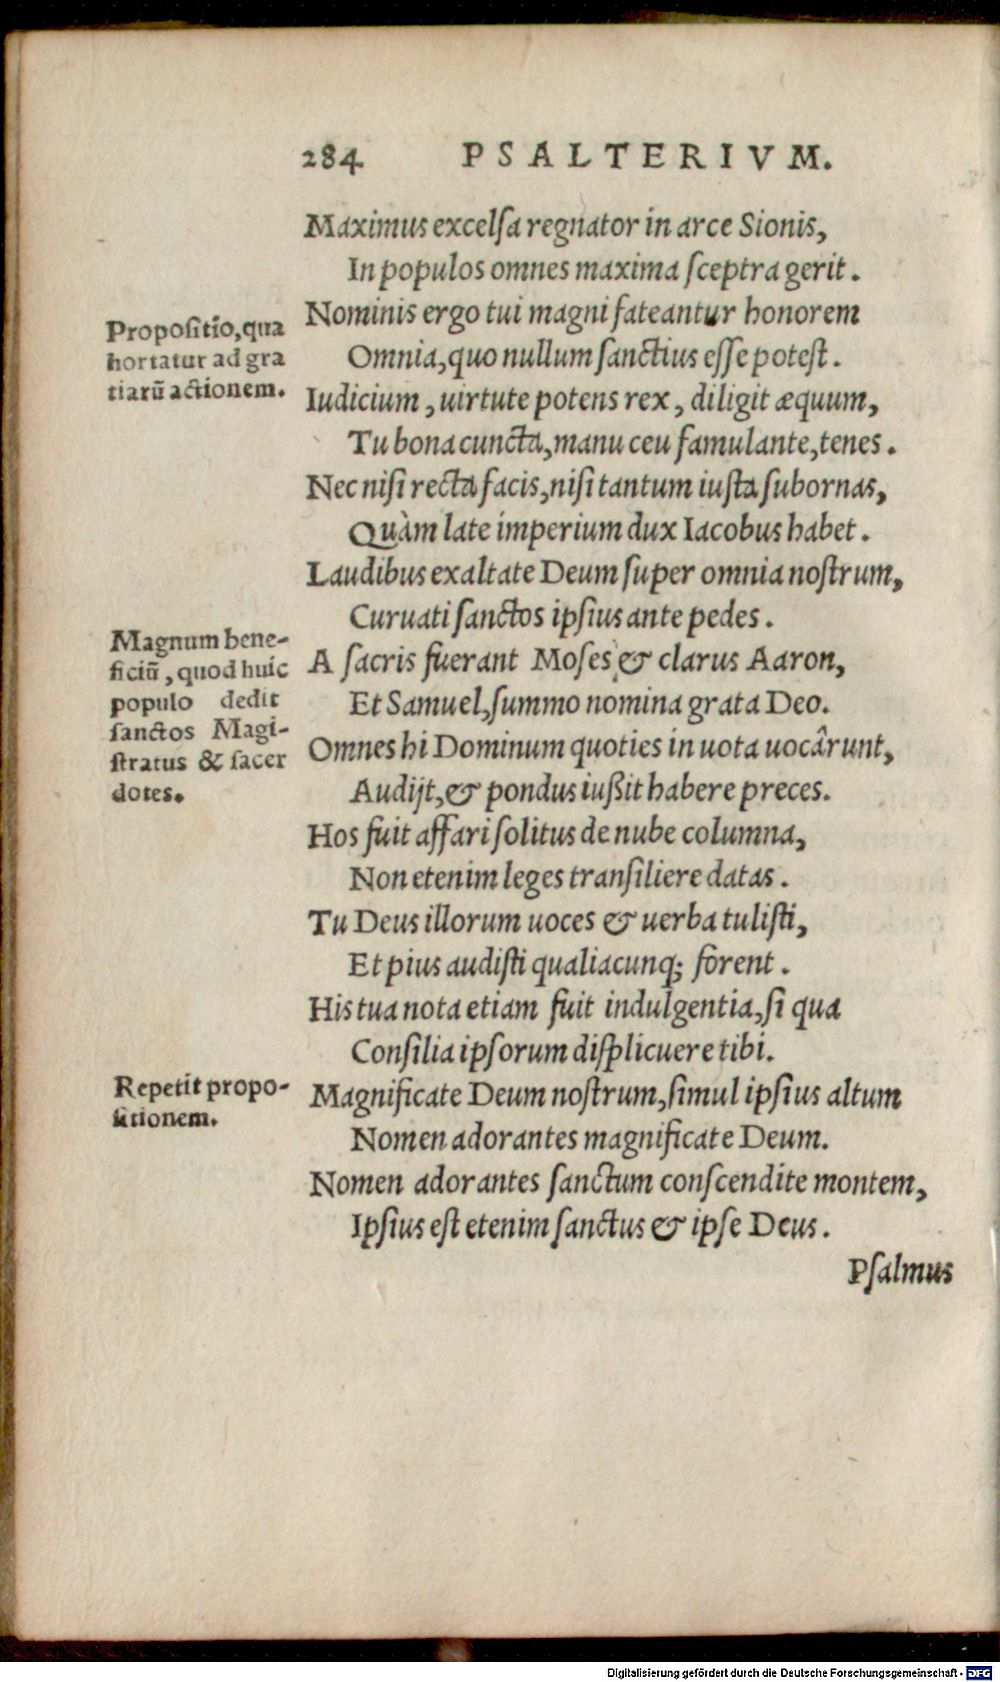 284 PSALTERIVM.
Maximus excelſa regnator in arce Sionis,
In populos omnes maxima ſceptra gerit.
Propoſitio, qua
hortatur ad gra
tiarũ actionem.
Nominis ergo tui magni fateantur honorem
Omnia, quo nullum ſanctius eſſe poteſt.
Iudicium, uirtute potens rex, diligit æquum,
Tu bona cuncta, manu ceu famulante, tenes.
Nec niſi recta facis, niſi tantum iuſta ſubornas,
Quàm late imperium dux Iacobus habet.
Laudibus exaltate Deum ſuper omnia noſtrum,
Curuati ſanctos ipſius ante pedes.
Magnum bene-
ficiũ, quod huic
populo dedit
ſanctos Magi-
ſtratus & ſacer
dotes.
A ſacris fuerant Moſes & clarus Aaron,
Et Samuel, ſummo nomina grata Deo.
Omnes hi Dominum quoties in uota uocârunt,
Audijt, & pondus iußit habere preces.
Hos fuit affari ſolitus de nube columna,
Non etenim leges tranſiliere datas.
Tu Deus illorum uoces & uerba tuliſti,
Et pius audiſti qualiacunq; forent.
His tua nota etiam fuit indulgentia, ſi qua
Conſilia ipſorum diſplicuere tibi.
Repetit propo-
ſitionem.
Magnificate Deum noſtrum, ſimul ipſius altum
Nomen adorantes magnificate Deum.
Nomen adorantes ſanctum conſcendite montem,
Ipſius eſt etenim ſanctus & ipſe Deus.
Pſalmus
Digitalisierung gefördert durch die Deutsche Forschungsgemeinschaft - DFG